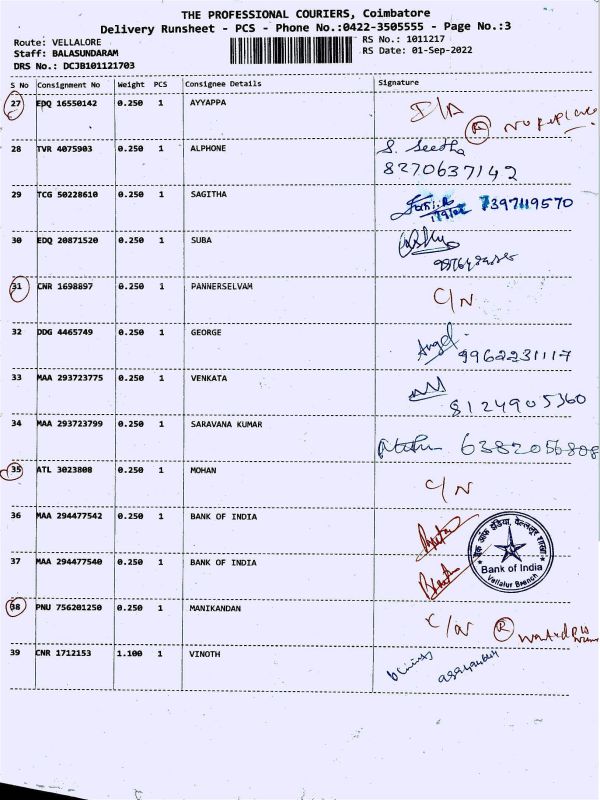 THE PROFESSIONAL COURIERS, Coimbatore
Delivery Runsheet - PCS - Phone No.:0422-3505555 - Page No.:3
Route: VELLALORE
RS No.: 1011217
Staff: BALASUNDARAM
RS Date: 01-Sep-2022
DRS No.: DCJB101121703
S No Consignment No Weight PCS Consignee Details Signature
27 EDQ 16550142 0.250 1 AYYAPPA D/A
28 TVR 4075903 0.250 1 ALPHONE S. Seetha
8270637142
29 TCG 50228610 0.250 1 SAGITHA 7397119570
30 EDQ 20871520 0.250 1 SUBA
31 CNR 1698897 0.250 1 PANNERSELVAM C/N
32 DDG 4465749 0.250 1 GEORGE Angel
9962231117
33 MAA 293723775 0.250 1 VENKATA
8124905360
34 MAA 293723799 0.250 1 SARAVANA KUMAR 6382056808
35 ATL 3023808 0.250 1 MOHAN C/N
36 MAA 294477542 0.250 1 BANK OF INDIA
37 MAA 294477540 0.250 1 BANK OF INDIA
Bank of India
Vellalur Branch
38 PNU 756201250 0.250 1 MANIKANDAN C/N R
39 CNR 1712153 1.100 1 VINOTH